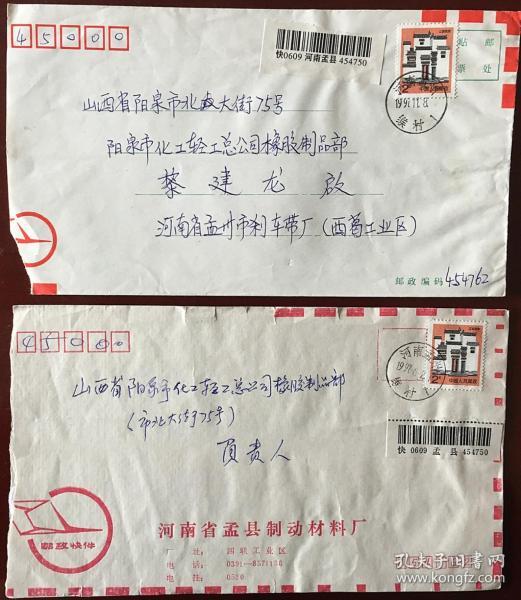 45000
快0609 河南孟县 454750
贴 邮
票 处
中国人民邮政
山西省阳泉市北大街75号
阳泉市化工轻工总公司橡胶制品部
黎建龙 啟
河南省孟州市刹车带厂(西葛工业区)
邮政编码 454762
45000
山西省阳泉市化工轻工总公司橡胶制品部
(市北大街75号)
负责人
快 0609 孟 县 454750
中国人民邮政
邮政快件
河南省孟县制动材料厂
厂 址: 四联工业区
电 话: 0391-8571136
电 挂: 0520
孔夫子旧书网
www.kongfz.com